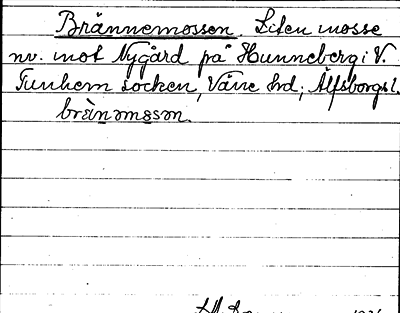 Brännemossen. Liten mosse
nv. mot Nygård på Hunneberg i V.
Tunhem socken, Väne hd, Älfsborgs l.
brànomsson.